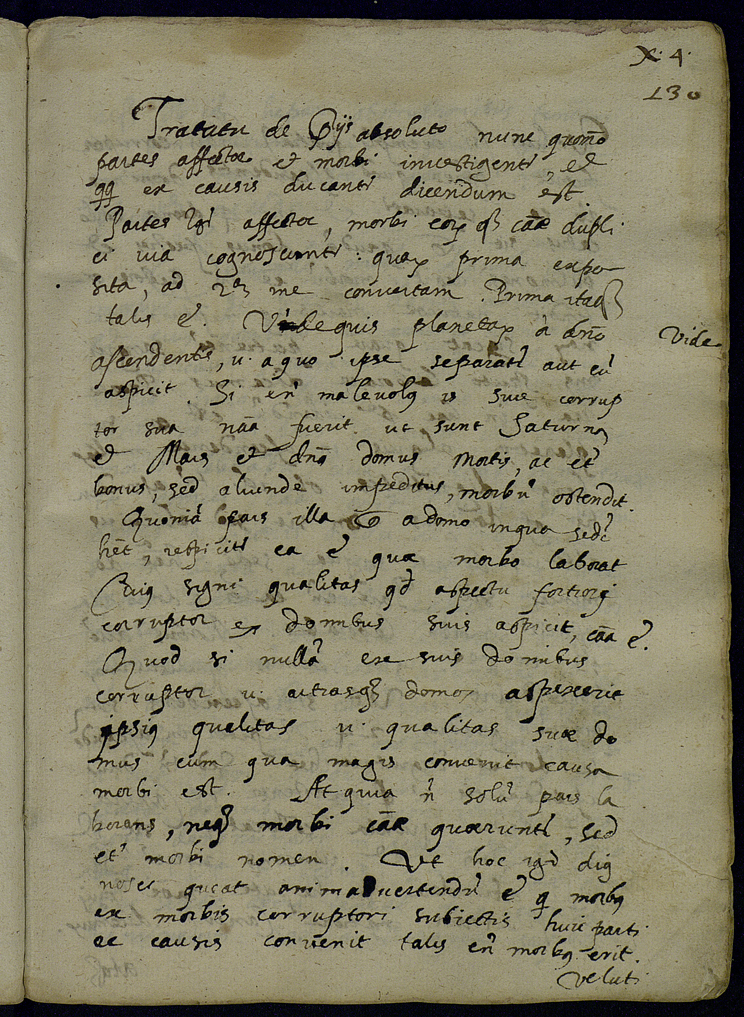 X. 4.
130
Tratatu de Dijs absoluto nunc quom̃o
partes affectae et morbi investigent', et
qq ex causis ducant' dicendum est
Partes igr̃ affectae, morbi eorq; cãae dupli
ci via cognoscunt': quar prima expo
sita, ad 2ã me convertam. Prima itaq;
talis ẽ. Vide quis planetar à dño
Vide
ascendentis, v. a quo ipse separat' aut eũ
aspicit. Si em̃ malevolq is sive corrup
tor sua nãa fuerit ut sunt Saturnq
et Mars et dñq domus mortis, ac et'
bonus, sed aliunde impeditus, morbũ ostendit.
Quoniã pars illa a domo in qua sedẽ
hẽt, respicit' ea ẽ quae morbo laborat
Cuiq signi qualitas qd aspectu fortiori
corruptor ex domibus suis aspicit, cãa ẽ.
Quod si nullã ex suis domibus
corruptor v. utrasq; domos aspexerit
ipsiq qualitas v. qualitas suae do
mus cum qua magis convenit causa
morbi est. At quia ñ solũ pars la
borans, neq; morbi cãae quaerunt', sed
et' morbi nomen. Ut hoc igr̃ dig
nosci queat animadvertendũ ẽ q morbq
ex morbis corruptori subiectis huic parti
ac causis convenit talis em̃ morbq erit.
veluti